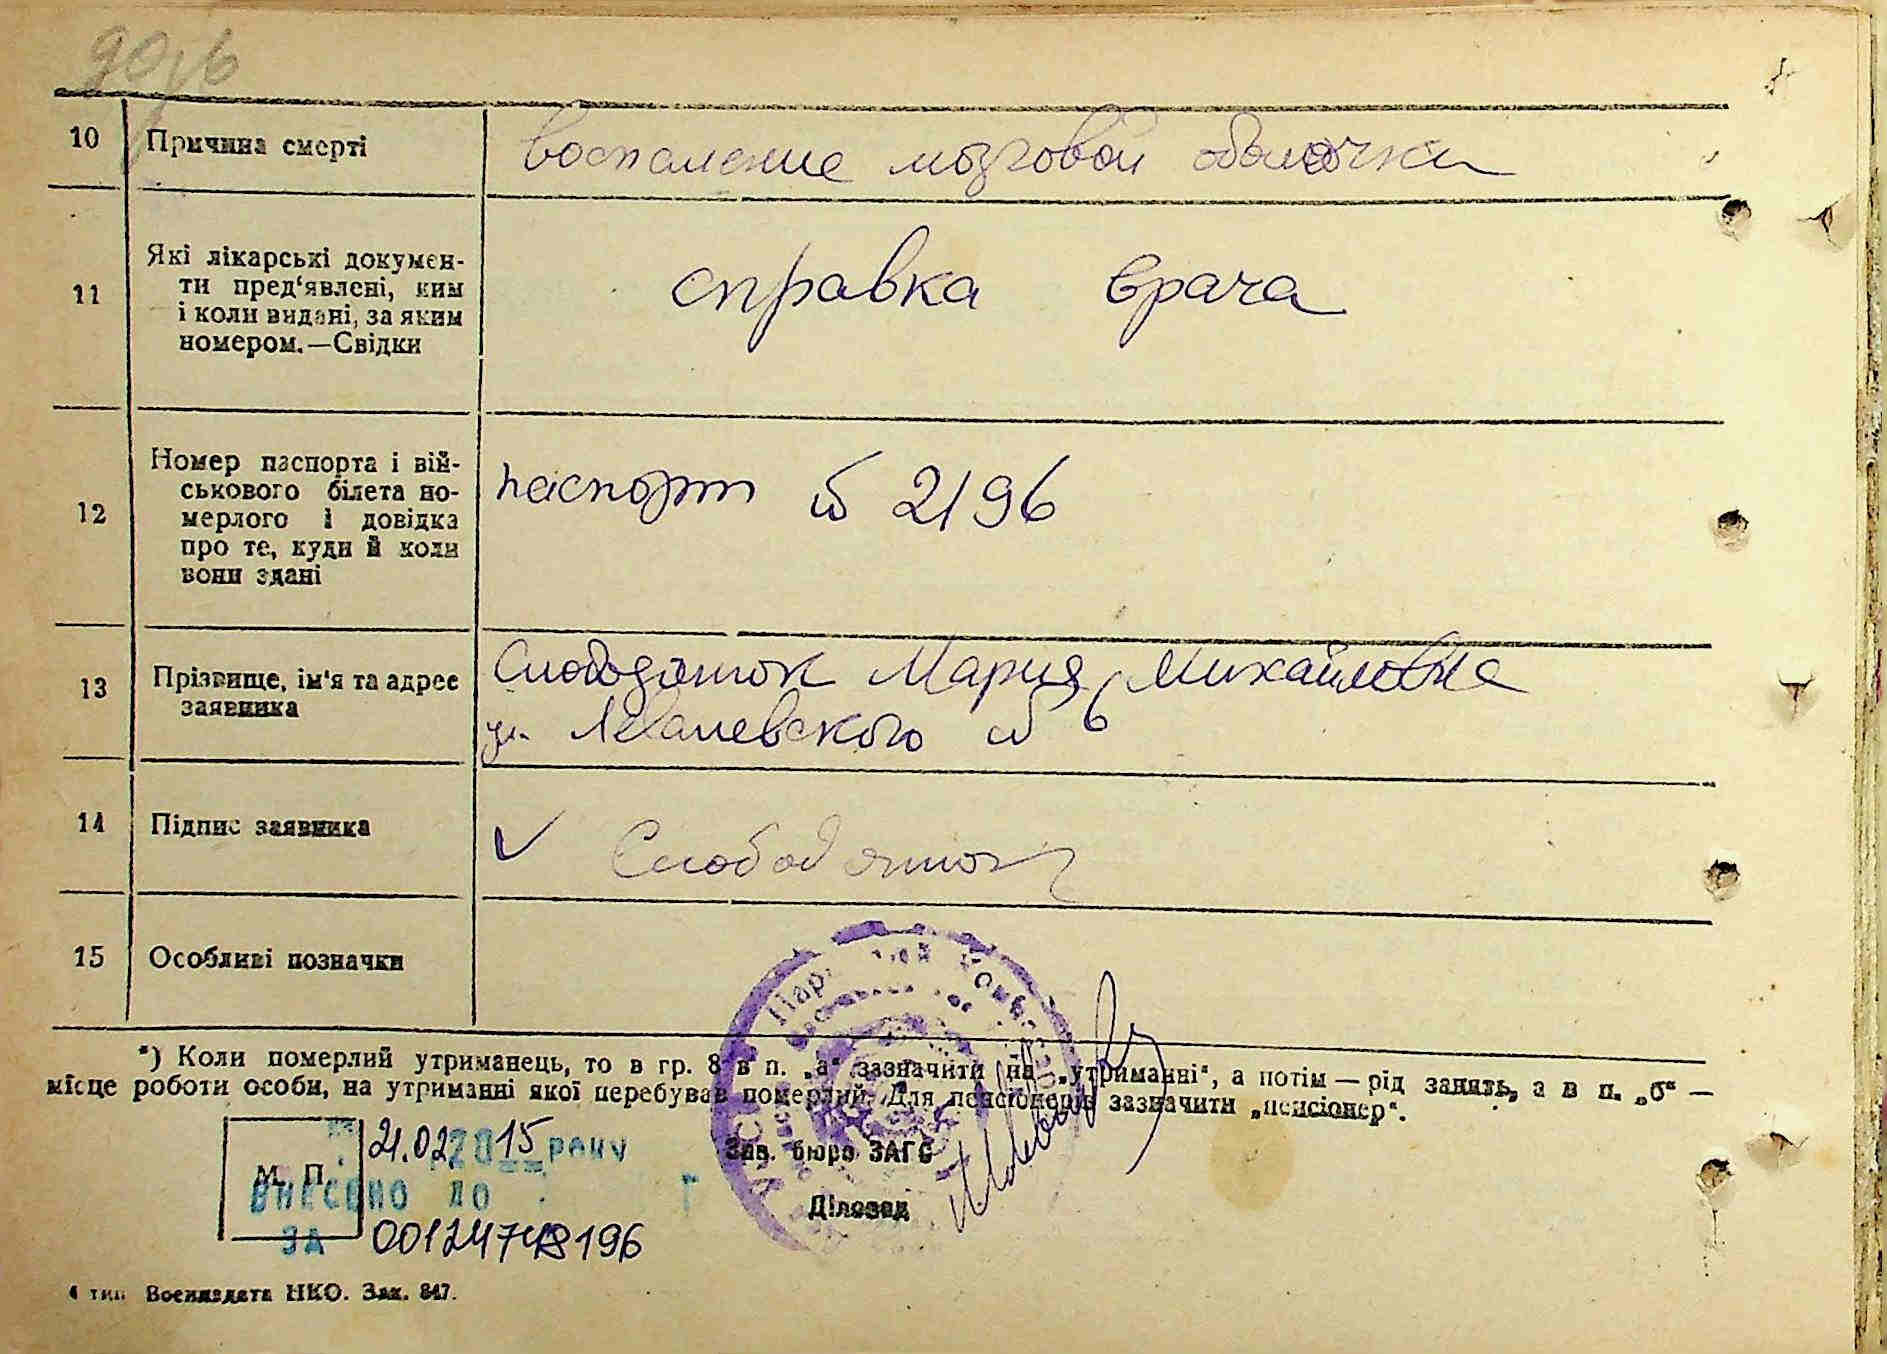 10 Причина смерті воспаление мозговой оболочки
11 Які лікарські докумен-
ти пред'явлені, ким
і коли видані, за яким
номером.—Свідки
справка врача
12 Номер паспорта і вій-
ськового білета по-
мерлого і довідка
про те, куди й коли
вони здані
паспорт № 2196
13 Прізвище, ім'я та адрес
заявника
Слободянюк Мария Михайловна
ул. Леваневского № 6
14 Підпис заявника
✓ Слободянюк
15 Особливі позначки
*) Коли померлий утриманець, то в гр. 8 в п. „а“ зазначити на „утриманні“, а потім — рід занять, а в п. „б“ —
місце роботи особи, на утриманні якої перебував померлий. Для пенсіонерів зазначити „пенсіонер“.
21.02 2015 року
М. П.
ВНЕСЕНО ДО
ЗА
Зав. бюро ЗАГС
Діловод
4 тип. Воениздата НКО. Зак. 847.